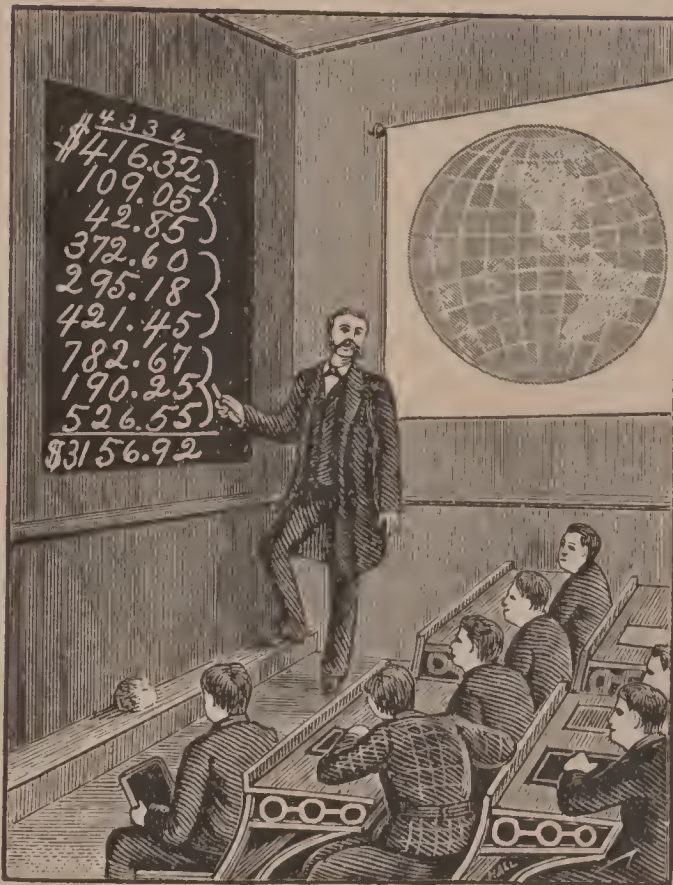 $4334
$416.32
109.05
42.85
372.60
295.18
421.45
782.67
190.25
526.55
$3156.92
HALL